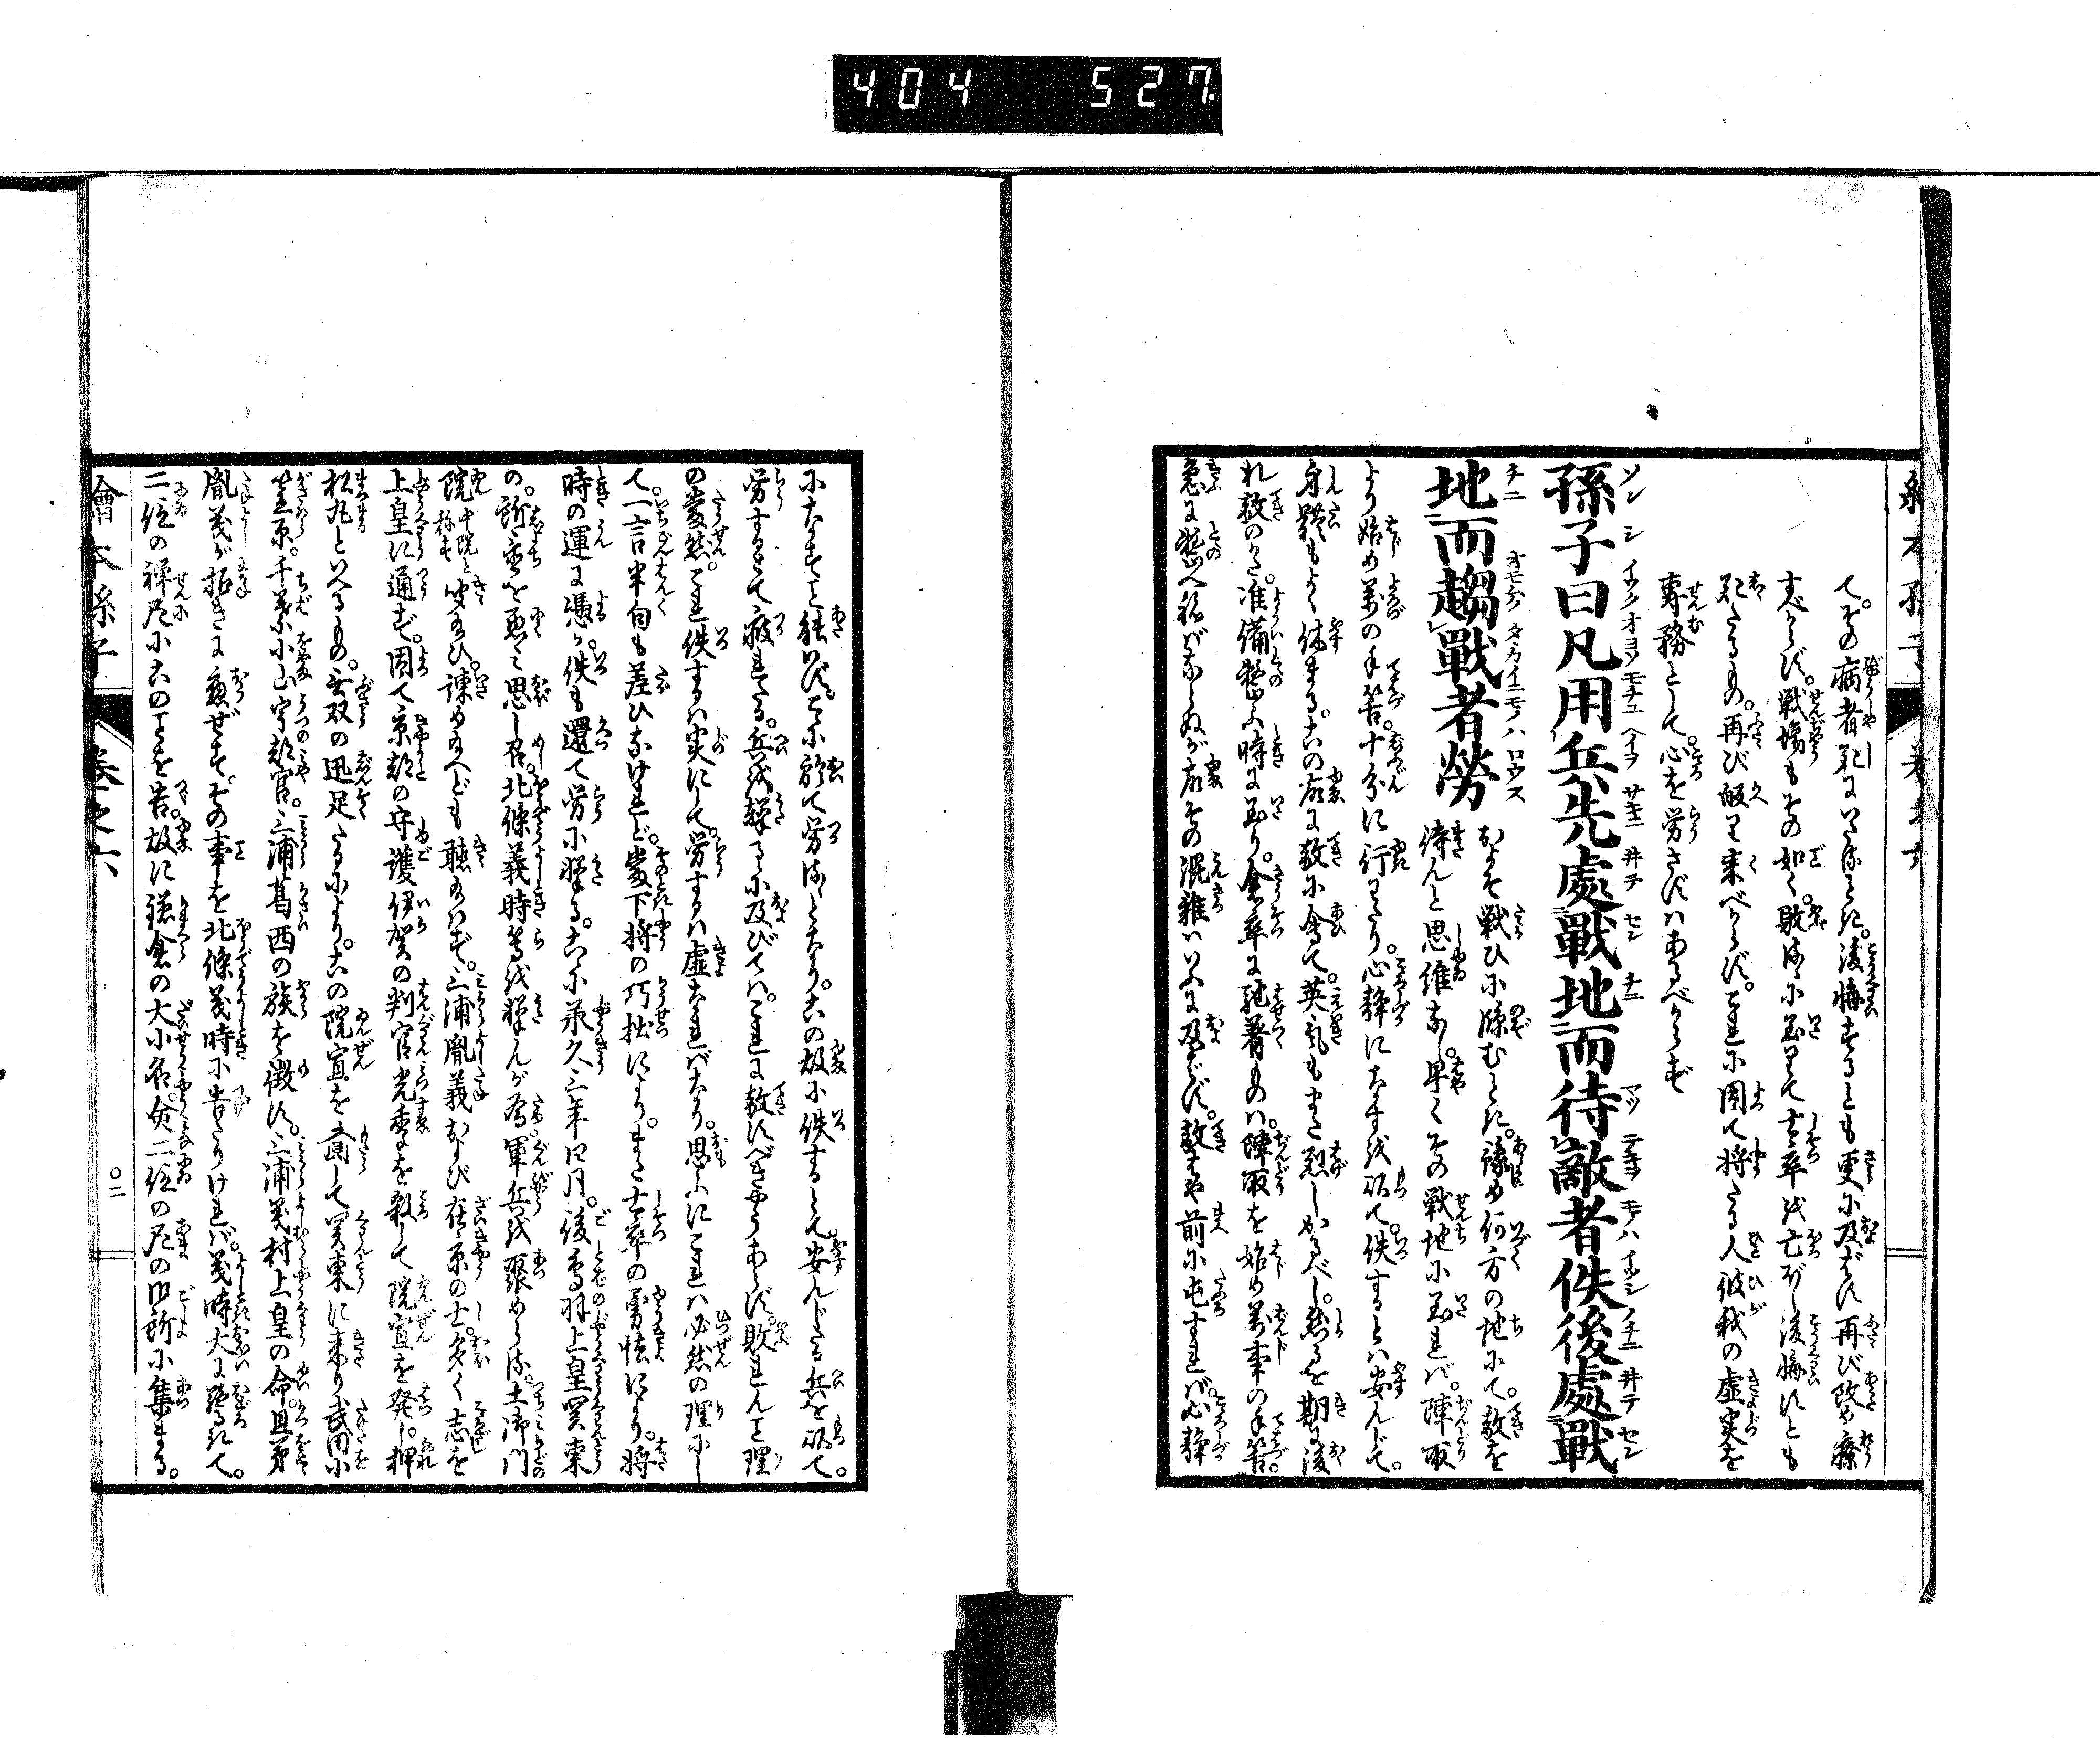 404 527
て。その病者死にいたるとき。後悔するとも更に及ばず再び改め療
すべからず。戦場もその如く。敗るに至りて士卒を亡ぼし後悔すとも
死たるもの。再び皈り来べからず。これに因て将たる人彼我の虚実を
専務として心を労さずはあるべからず
孫子曰凡用兵先處戰地而待敵者佚後處戰
地而趨戰者勞
およそ戦ひに臨むとき。豫め何方の地にて。敵を
待んと思維なし。早くその戦地に至れば。陣取
より始め萬の手筈。十分に行わたり。心静になすを以て。佚するとは安んじて。
身體もよく休まる。かの所に敵に會て。英気もまた烈しかるべし。然るを期に後
れ敵のかた。准備整ふ時に至り。倉卒に馳着ものは。陣取を始め萬事の手筈。
急に整へ移がならぬが故その混雑いふに及ばず。敵はや前に屯すれば。心静
になすこと能はず。こゝに於て労るゝとなり。この故に佚するとて安んじたる兵を以て。
労するとて疲れたる。兵を撃るに及びては。これに敵すべきやうあらず。敗れんこと理
の當然。これ佚するは実にして。労するは虚なればなり。思ふにこれは必然の理にし
て。一言半句も差ひなけれど。當下将の巧拙により。また士卒の勇怯により。将
時の運に憑ば。佚も還て労に撃る。かに承久三年四月。後鳥羽上皇関東
の。所業を悪く思し召。北條義時等を撃んが為。軍兵を聚めらる。土御門
院中院と称す此を聞給ひ。諫め給へども聴給はず。三浦胤義および在京の士多く志を
上皇に通ず。因て京都の守護伊賀の判官光季を殺して院宣を発し。押
松丸といへるもの。無双の迅足たるにより。かの院宣を齎して関東に来り武田小
笠原。千葉小山宇都宮。三浦葛西の族を徴す。三浦義村上皇の命。且弟
胤義が招きに應ぜず。その事を北條義時に告たりければ。義時大に驚きて。
二位の禅尼にかのことを告。故に鎌倉の大小名。僉二位の尼の御所に集まる。
繪本孫子 巻之六 〇二